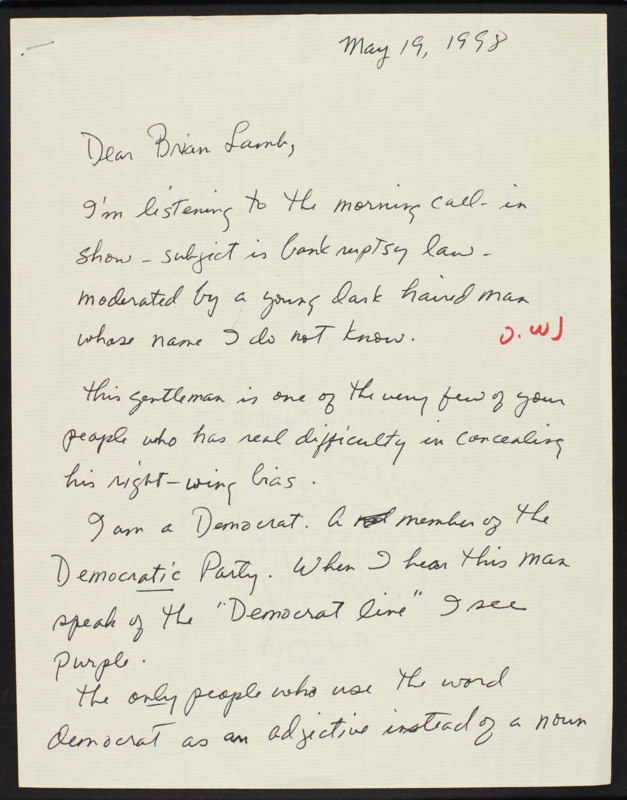 May 19, 1998
Dear Brian Lamb,
I'm listening to the morning call-in
show - subject is bankruptsy law -
moderated by a young dark haired man
whose name I do not know.
J. WJ
This gentleman is one of the very few of your
people who has real difficulty in concealing
his right-wing bias.
I am a Democrat. A member of the
Democratic Party. When I hear this man
speak of the "Democrat line" I see
purple.
The only people who use the word
democrat as an adjective instead of a noun